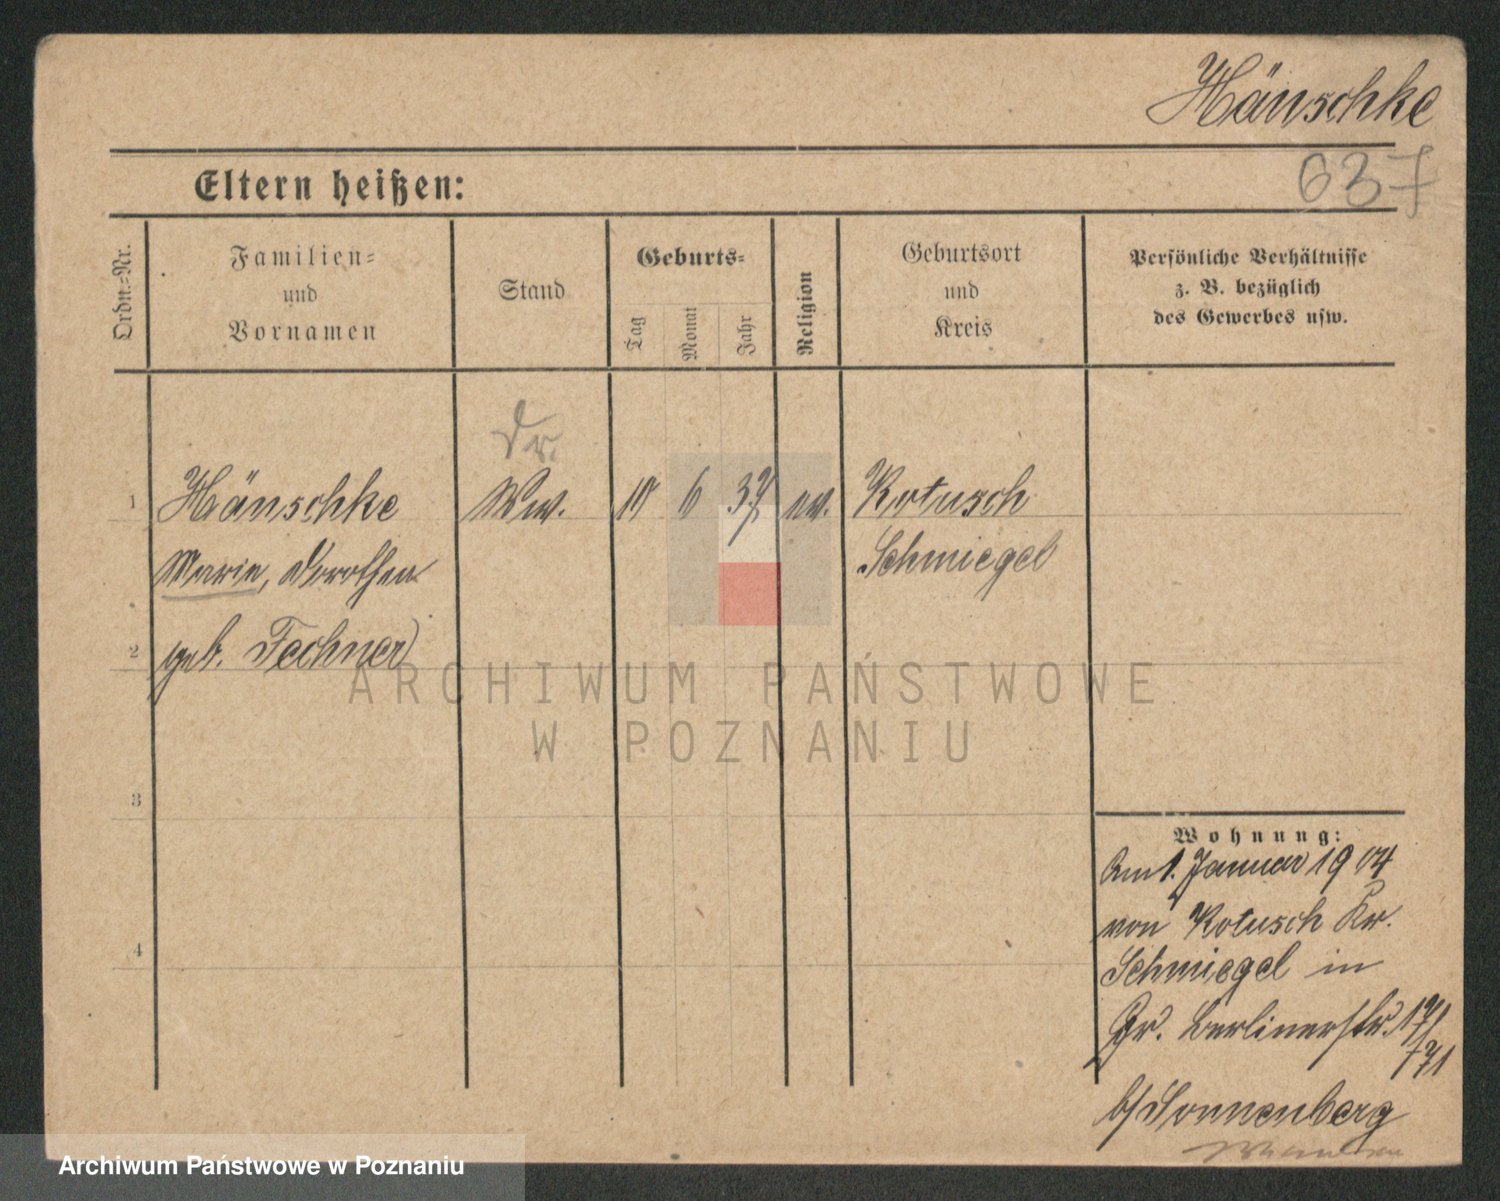 Hänschke
637
Eltern heißen:
Ordn.-Nr.
Familien-
und
Vornamen
Stand
Geburts-
Tag
Monat
Jahr
Religion
Geburtsort
und
Kreis
Persönliche Verhältnisse
z. B. bezüglich
des Gewerbes usw.
1 Hänschke Ww. 6 37 ev. Kotusch
Marie, Dorothea Schmiegel
2 geb. Fechner
ARCHIWUM PAŃSTWOWE
W POZNANIU
3
4
Wohnung:
Am 1. Januar 1904
von Kotusch Kr.
Schmiegel in
Gr. Berlinerstr.
b/Sonnenberg
Archiwum Państwowe w Poznaniu